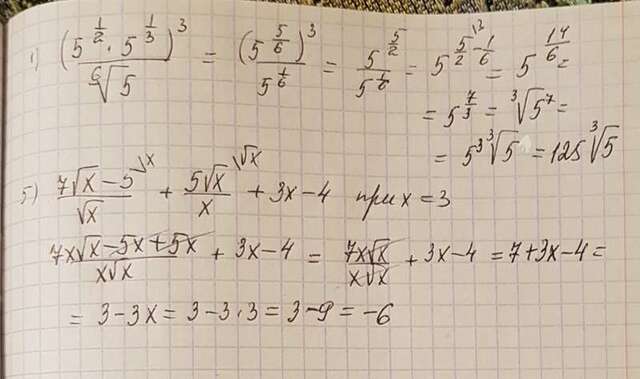 1) (5^{1/2} · 5^{1/3})^3 / ⁶√5 = (5^{5/6})^3 / 5^{1/6} = 5^{5/2} / 5^{1/6} = 5^{5/2 - 1/6} = 5^{14/6} =
= 5^{7/3} = ³√5^7 =
= 5^3 ³√5 = 125 ³√5
5) (7√x - 5)/√x + 5√x/x + 3x - 4 при x = 3
(7x√x - 5x + 5x)/(x√x) + 3x - 4 = 7x√x/(x√x) + 3x - 4 = 7 + 3x - 4 =
= 3 - 3x = 3 - 3·3 = 3 - 9 = -6